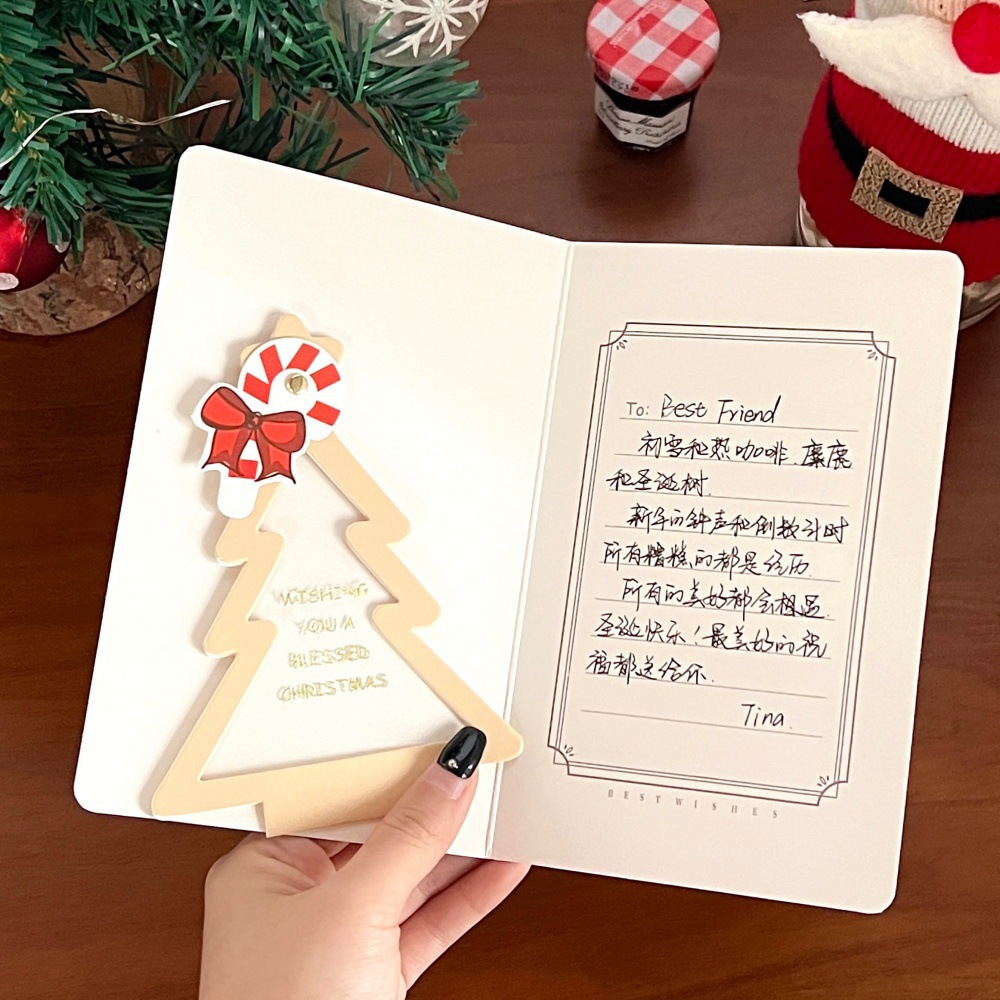 WISHING
YOU A
BLESSED
CHRISTMAS
To: Best Friend
初雪和热咖啡、麋鹿
和圣诞树.
新年的钟声和倒数计时
所有糟糕的都是经历.
所有的美好都会相遇.
圣诞快乐！最美好的祝
福都送给你.
Tina.
BEST WISHES